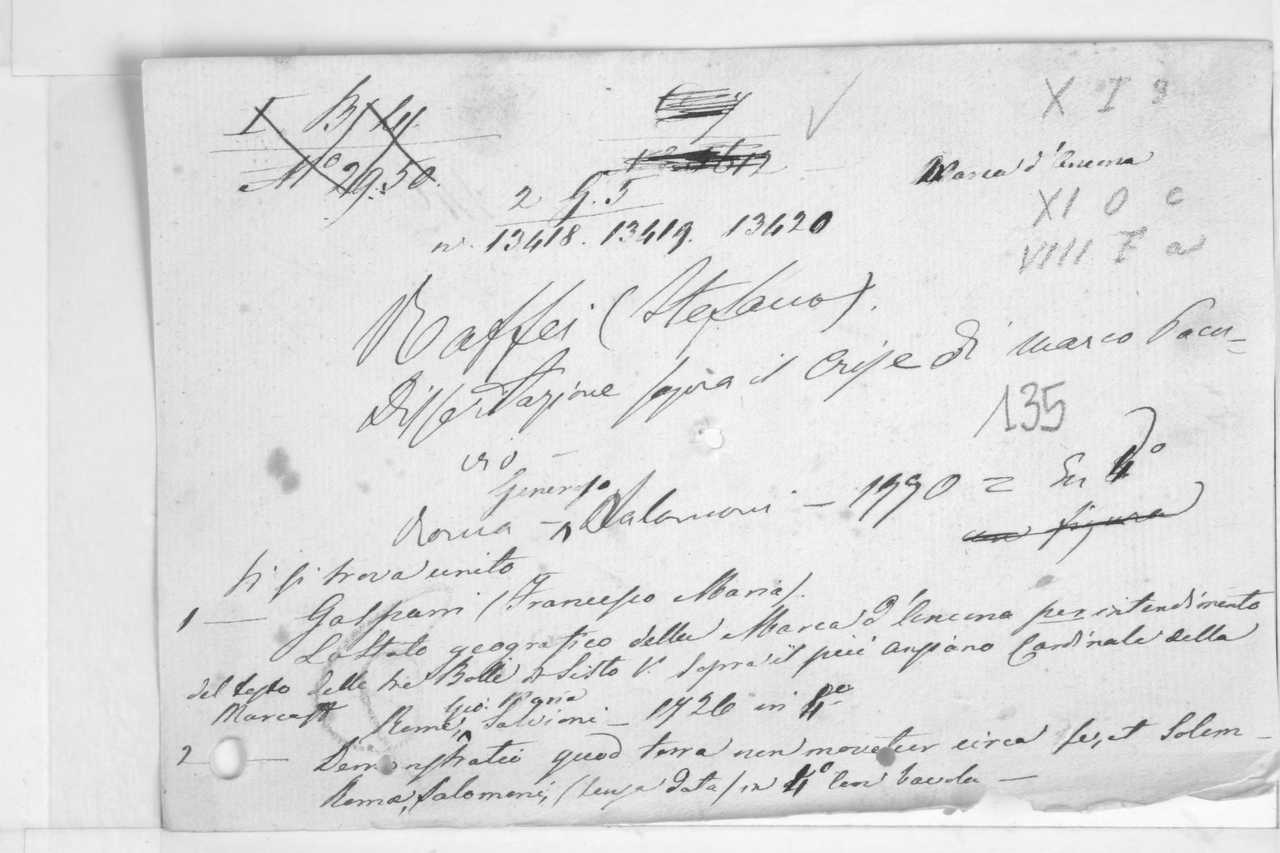 I. B. 14.
N.º 29.50.
2 G. 5
n.º 13418. 13419. 13420
X I 9
Marca d'Ancona
XI O c
VIII F a
Raffei (Stefano).
Dissertazione sopra il Crise di Marco Pacu-
vio —
135
Generoso
Roma — Salomoni — 1770 = In 4º
con figura
Vi si trova unito
1 — Gasparri (Francesco Maria).
Lo Stato geografico della Marca d'Ancona per intendimento
del testo delle tre Bolle di Sisto V. sopra il più anziano Cardinale della
Marca
Gio: Maria
Roma, Salvioni — 1726 in 4º
2 — Demonstratio quod terra non movetur circa se, et Solem —
Romæ, Salomoni, (senza data) in 4º con tavola —